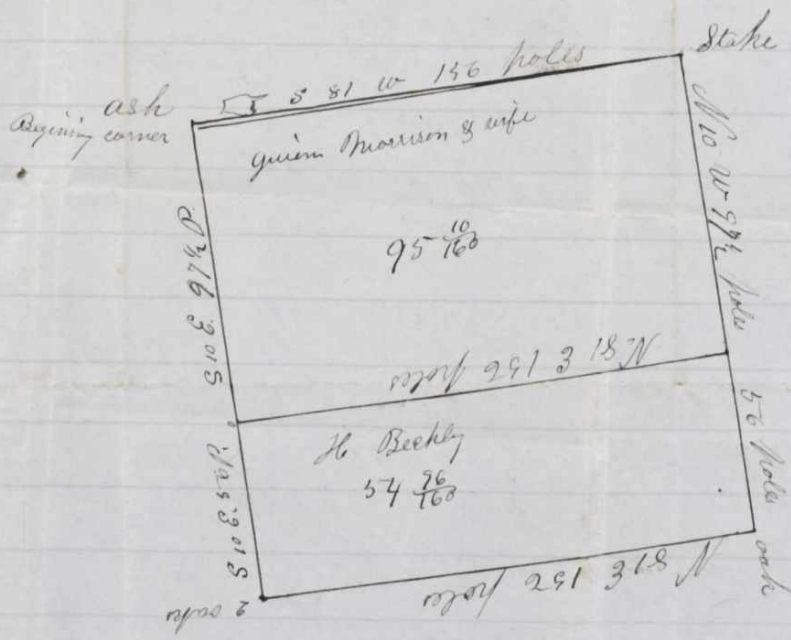 Stake
S 81 W 156 poles
ash
Begining corner
Morrison & wife
95 10/160
N 10 W 97½ poles
S 10 E 97½ P
N 81 E 156 poles
H Beckly
54 96/160
56 poles
S 10 E 56 P
N 81 E 156 poles
oak
2 oaks